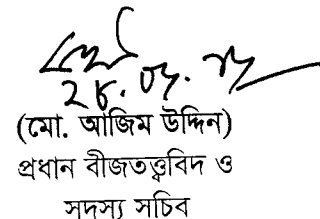 (মো. আজিম উদ্দিন)
প্রধান বীজতত্ত্ববিদ ও
সদস্য সচিব